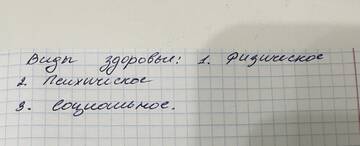 Виды здоровья: 1. Физическое
2. Психическое
3. Социальное.